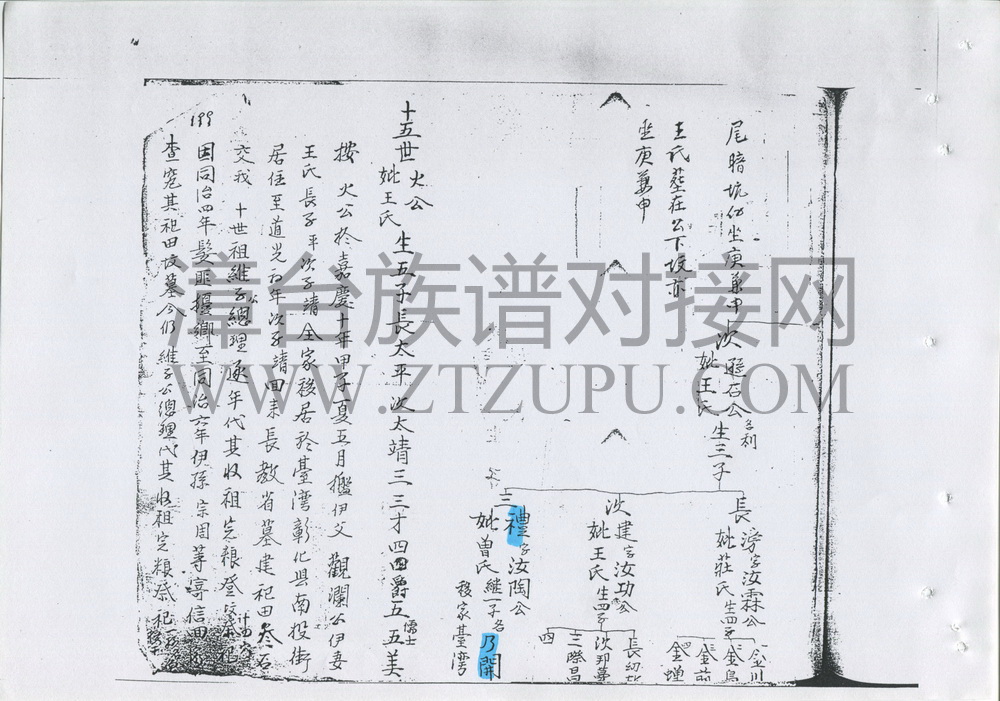 尾暗坑仔坐庚兼申 次 聰石公 名利
妣王氏 生三子
王氏塟在公下坟亦
坐庚兼申
長 滂字汝霖公
妣莊氏 生四子
金川
金鳥
金前
金增
次 建字汝功公
妣王氏 生四子
長
次
三際昌
四
三 禮字汝陶公
妣曾氏 继一子名乃開
移家臺灣
十五世 火公
妣王氏 生五子長太平 次太靖 三三才 四四爵 五五美
儒士
按 火公於嘉慶十年甲子夏五月攜伊父 觀瀾公伊妻
王氏長子平次子靖全家移居於臺灣彰化县南投街
居住至道光初年次子靖回来長教省墓建祀田叁石
交我 十世祖維子公總理逐年代其收租完粮祭
199
因同治四年髮匪擾鄉至同治六年伊孫宗周等寄信回
查究其祀田坟墓今仍維子公總理代其收租完粮祭祀
漳台族谱对接网
WWW.ZTZUPU.COM